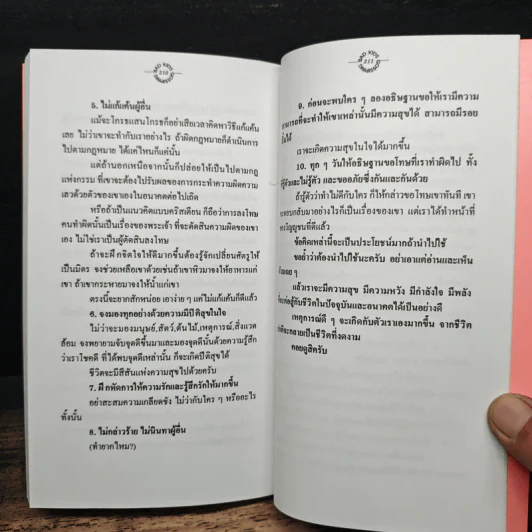 BAD KIDS
210
5. ไม่แก้แค้นผู้อื่น
แม้จะโกรธแสนโกรธก็อย่าเสียเวลาคิดหาวิธีแก้แค้น
เลย ไม่ว่าเขาจะทำกับเราอย่างไร ถ้าผิดกฎหมายก็ดำเนินการ
ไปตามกฎหมาย ได้แค่ไหนก็แค่นั้น
แต่ถ้านอกเหนือจากนั้นก็ปล่อยให้เป็นไปตามกฎ
แห่งกรรม ที่เขาจะต้องไปรับผลของการกระทำความผิดความ
เลวด้วยตัวของเขาเองในอนาคตต่อไปเถิด
หรือถ้าเป็นแนวคิดแบบคริสเตียน ก็ถือว่าการลงโทษ
คนทำผิดนั้นเป็นเรื่องของพระเจ้า ที่จะตัดสินความผิดของเขา
เอง ไม่ใช่เราเป็นผู้ตัดสินลงโทษ
ถ้าจะฝึกจิตใจให้ดีมากขึ้นต้องรู้จักเปลี่ยนศัตรูให้
เป็นมิตร จงช่วยเหลือเขาด้วยเช่นถ้าเขาหิวมาจงให้อาหารแก่
เขา ถ้าเขากระหายมาจงให้น้ำแก่เขา
ตรงนี้จะยากสักหน่อย เอาง่าย ๆ แค่ไม่แก้แค้นก็ดีแล้ว
6. จงมองทุกอย่างด้วยความมีปิติสุขในใจ
ไม่ว่าจะมองมนุษย์,สัตว์,ต้นไม้,เหตุการณ์,สิ่งแวด
ล้อม จงพยายามจับจุดดีขึ้นมาและมองจุดดีนั้นด้วยความรู้สึก
ว่าเราโชคดี ที่ได้พบจุดดีเหล่านั้น ก็จะเกิดปีติสุขได้
ชีวิตจะมีสีสันแห่งความสุขไปด้วยครับ
7. ฝึกหัดการให้ความรักและรู้สึกรักให้มากขึ้น
อย่าสะสมความเกลียดชัง ไม่ว่ากับใคร ๆ หรืออะไร
ทั้งนั้น
8. ไม่กล่าวร้าย ไม่นินทาผู้อื่น
(ทำยากไหม?)
BAD KIDS
211
9. ก่อนจะพบใคร ๆ ลองอธิษฐานขอให้เรามีความ
สามารถที่จะทำให้เขาเหล่านั้นมีความสุขได้ สามารถมีรอย
ได้
เราจะเกิดความสุขในใจได้มากขึ้น
10. ทุก ๆ วันให้อธิษฐานขอโทษที่เราทำผิดไป ทั้ง
รู้ตัวและไม่รู้ตัว และขออภัยซึ่งกันและกันด้วย
ถ้ารู้ตัวว่าทำไม่ดีกับใคร ก็ให้กล่าวขอโทษเขาทันที เขา
จะตอบกลับมาอย่างไรก็เป็นเรื่องของเขา แต่เราได้ทำหน้าที่
ของวิญญูชนที่ดีแล้ว
ข้อคิดเหล่านี้จะเป็นประโยชน์มากถ้านำไปใช้
ขอย้ำว่าต้องนำไปใช้นะครับ อย่าเอาแต่อ่านและเห็น
เฉย ๆ
แล้วเราจะมีความสุข มีความหวัง มีกำลังใจ มีพลัง
ที่จะต่อสู้กับชีวิตในปัจจุบันและอนาคตได้เป็นอย่างดี
เหตุการณ์ดี ๆ จะเกิดกับตัวเราเองมากขึ้น จากชีวิต
จะกลายเป็นชีวิตที่งดงาม
คอยดูสิครับ